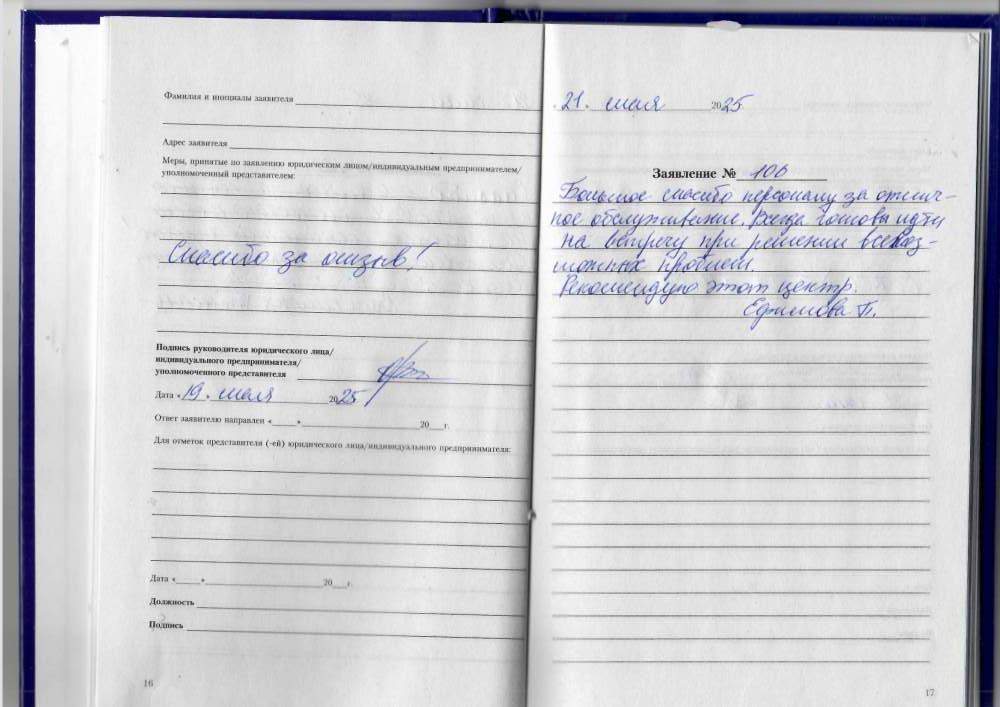 Фамилия и инициалы заявителя
Адрес заявителя
Меры, принятые по заявлению юридическим лицом/индивидуальным предпринимателем/
уполномоченный представителем:
Спасибо за отзыв!
Подпись руководителя юридического лица/
индивидуального предпринимателя/
уполномоченного представителя
Дата «19. мая 2025
Ответ заявителю направлен «____»____ 20__г.
Для отметок представителя (-ей) юридического лица/индивидуального предпринимателя:
Дата «____»____ 20__г.
Должность
Подпись
16
21. мая 2025
Заявление № 106
Большое спасибо персоналу за отлич-
ное обслуживание. Всегда готовы идти
на встречу при решении всевоз-
можных проблем.
Рекомендую этот центр.
Ефимова П.
17